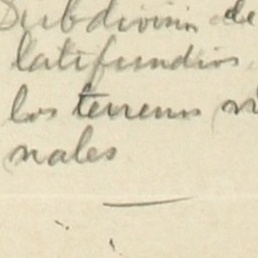 Subdivisin de
latifundios
los terrenos
nales